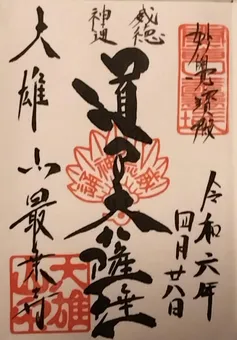 妙覺寶殿
威徳
神通
道了大薩埵
令和六年
四月廿八日
大雄山最乗寺